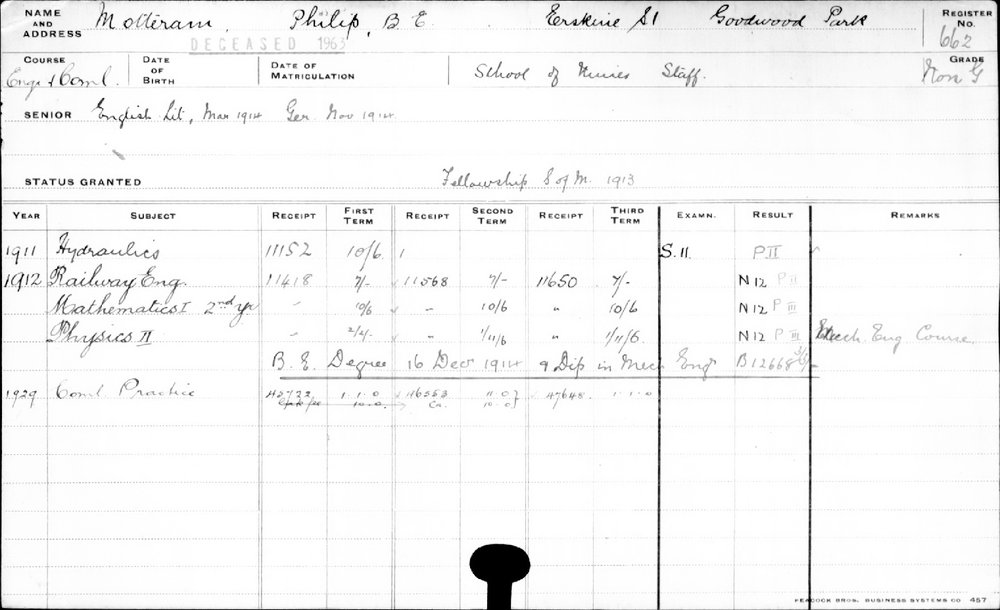 NAME AND ADDRESS Motteram, Philip, B.E. Erskine St Goodwood Park REGISTER No. 662
DECEASED 1963
COURSE Engr & Coml. DATE OF BIRTH DATE OF MATRICULATION School of Mines Staff. GRADE Non G
SENIOR English Lit, Mar 1914 Ger. Nov 1914
STATUS GRANTED Fellowship S of M. 1913
YEAR SUBJECT RECEIPT FIRST TERM RECEIPT SECOND TERM RECEIPT THIRD TERM EXAMN. RESULT REMARKS
1911 Hydraulics 11152 10/6 S.11. P II
1912 Railway Eng. 11418 7/- 11568 7/- 11650 7/- N 12 P II
Mathematics I 2nd yr " 10/6 " 10/6 " 10/6 N 12 P III
Physics II " 2/4/- " 1/11/6 " 1/11/6 N 12 P III Mech. Eng Course
B.E. Degree 16 Decr 1914 & Dip in Mech Engr B12668
1929 Coml Practice 42732 1-1-0 46553 11-0 47648 1-1-0
10-0 Ca. 10-0
PEACOCK BROS. BUSINESS SYSTEMS CO 457